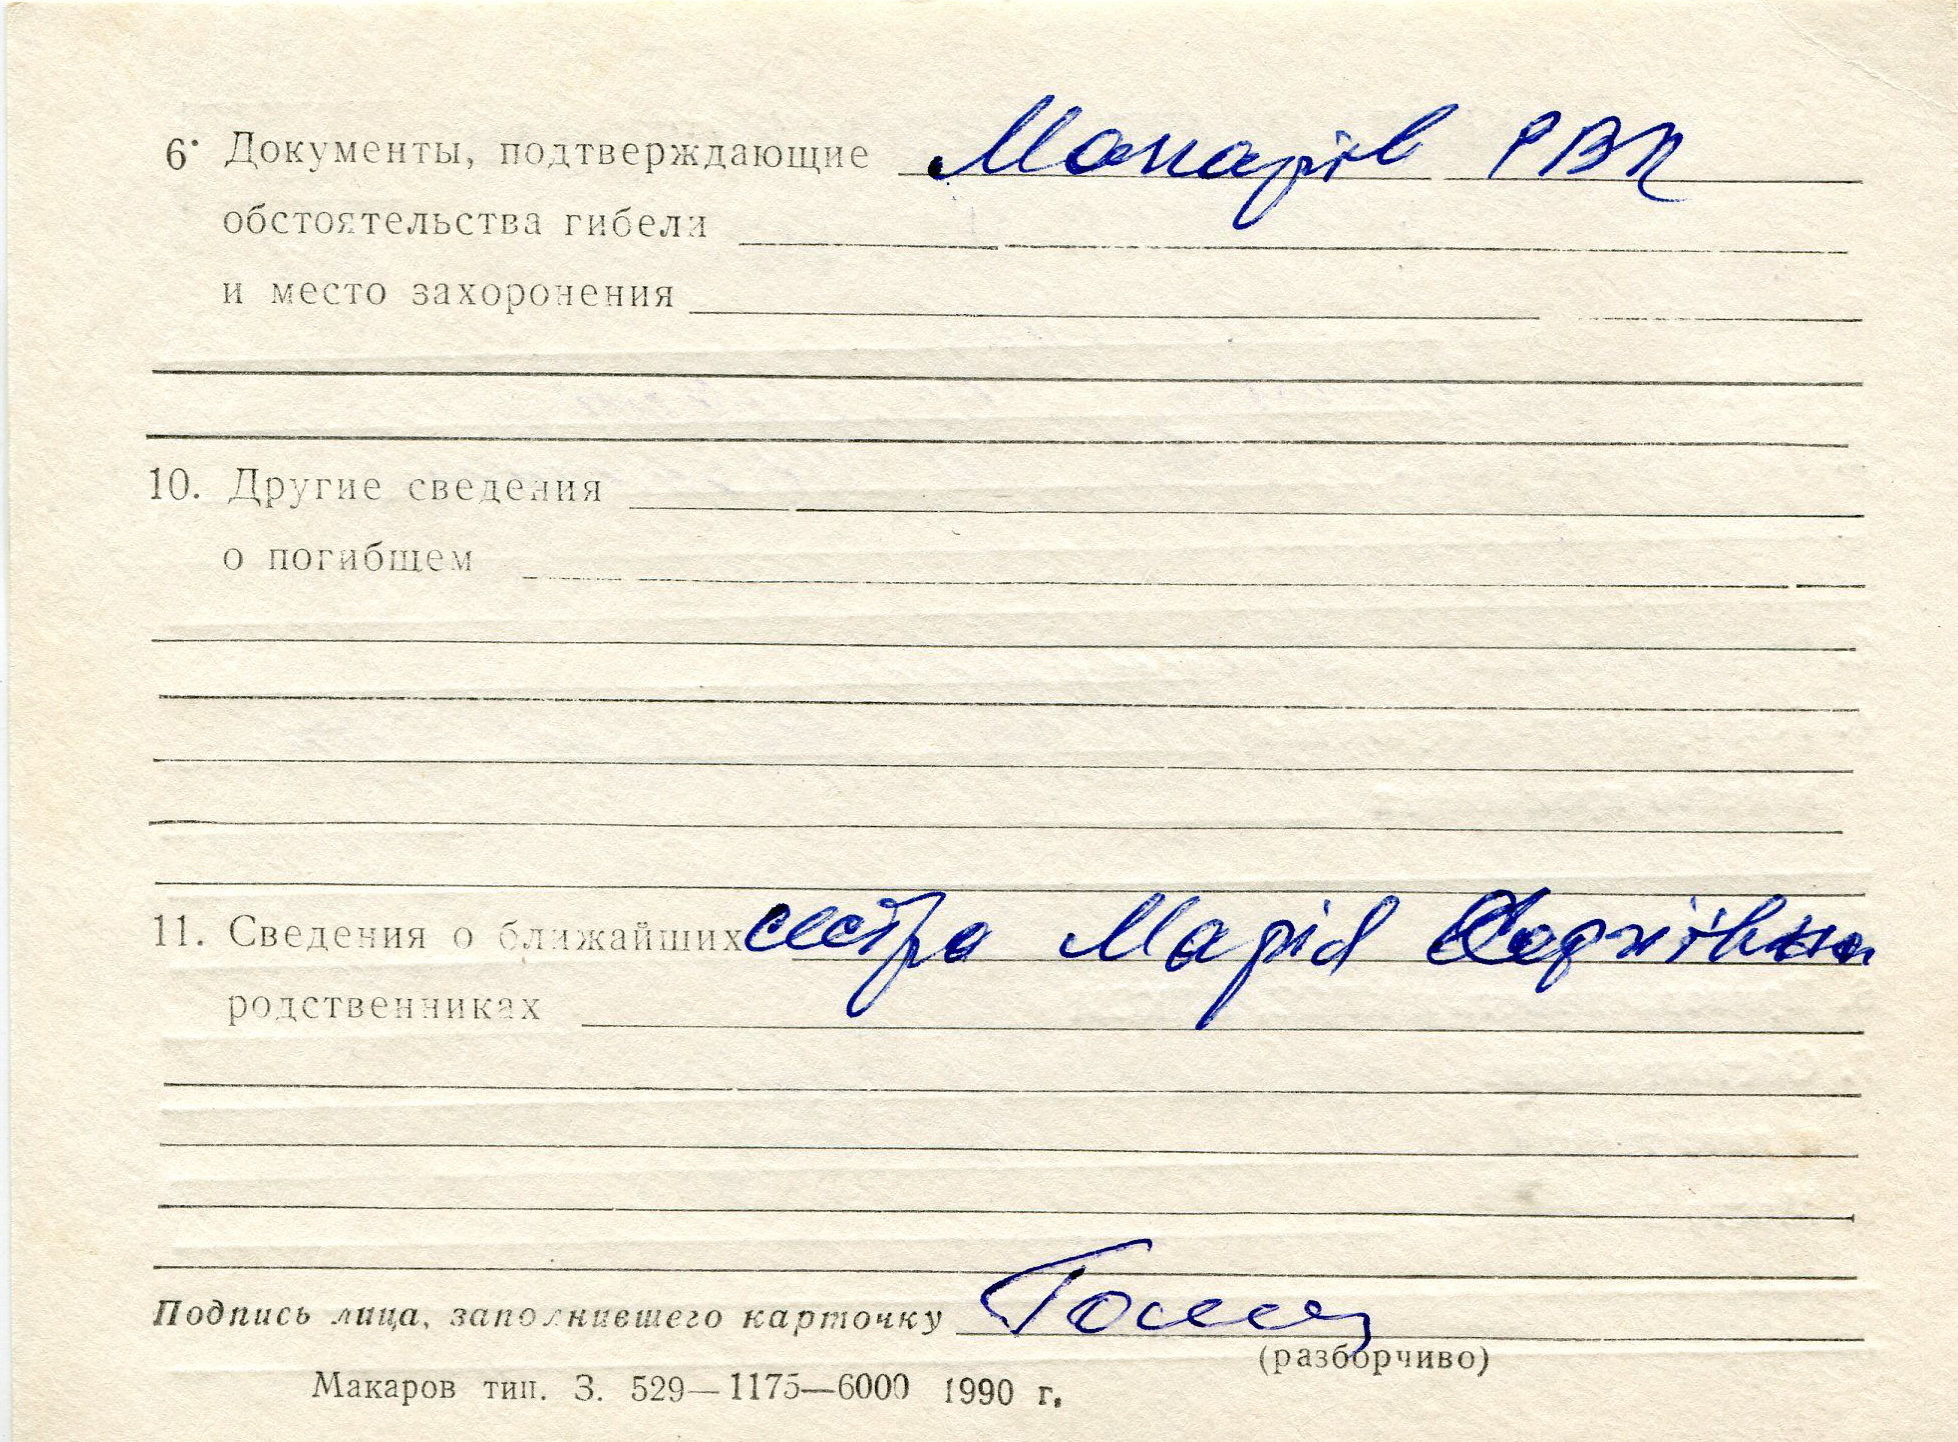 6. Документы, подтверждающие Макарів РВК
обстоятельства гибели
и место захоронения
10. Другие сведения
о погибшем
11. Сведения о ближайших сестра Марія
родственниках
Подпись лица, заполнившего карточку
(разборчиво)
Макаров тип. З. 529—1175—6000 1990 г.